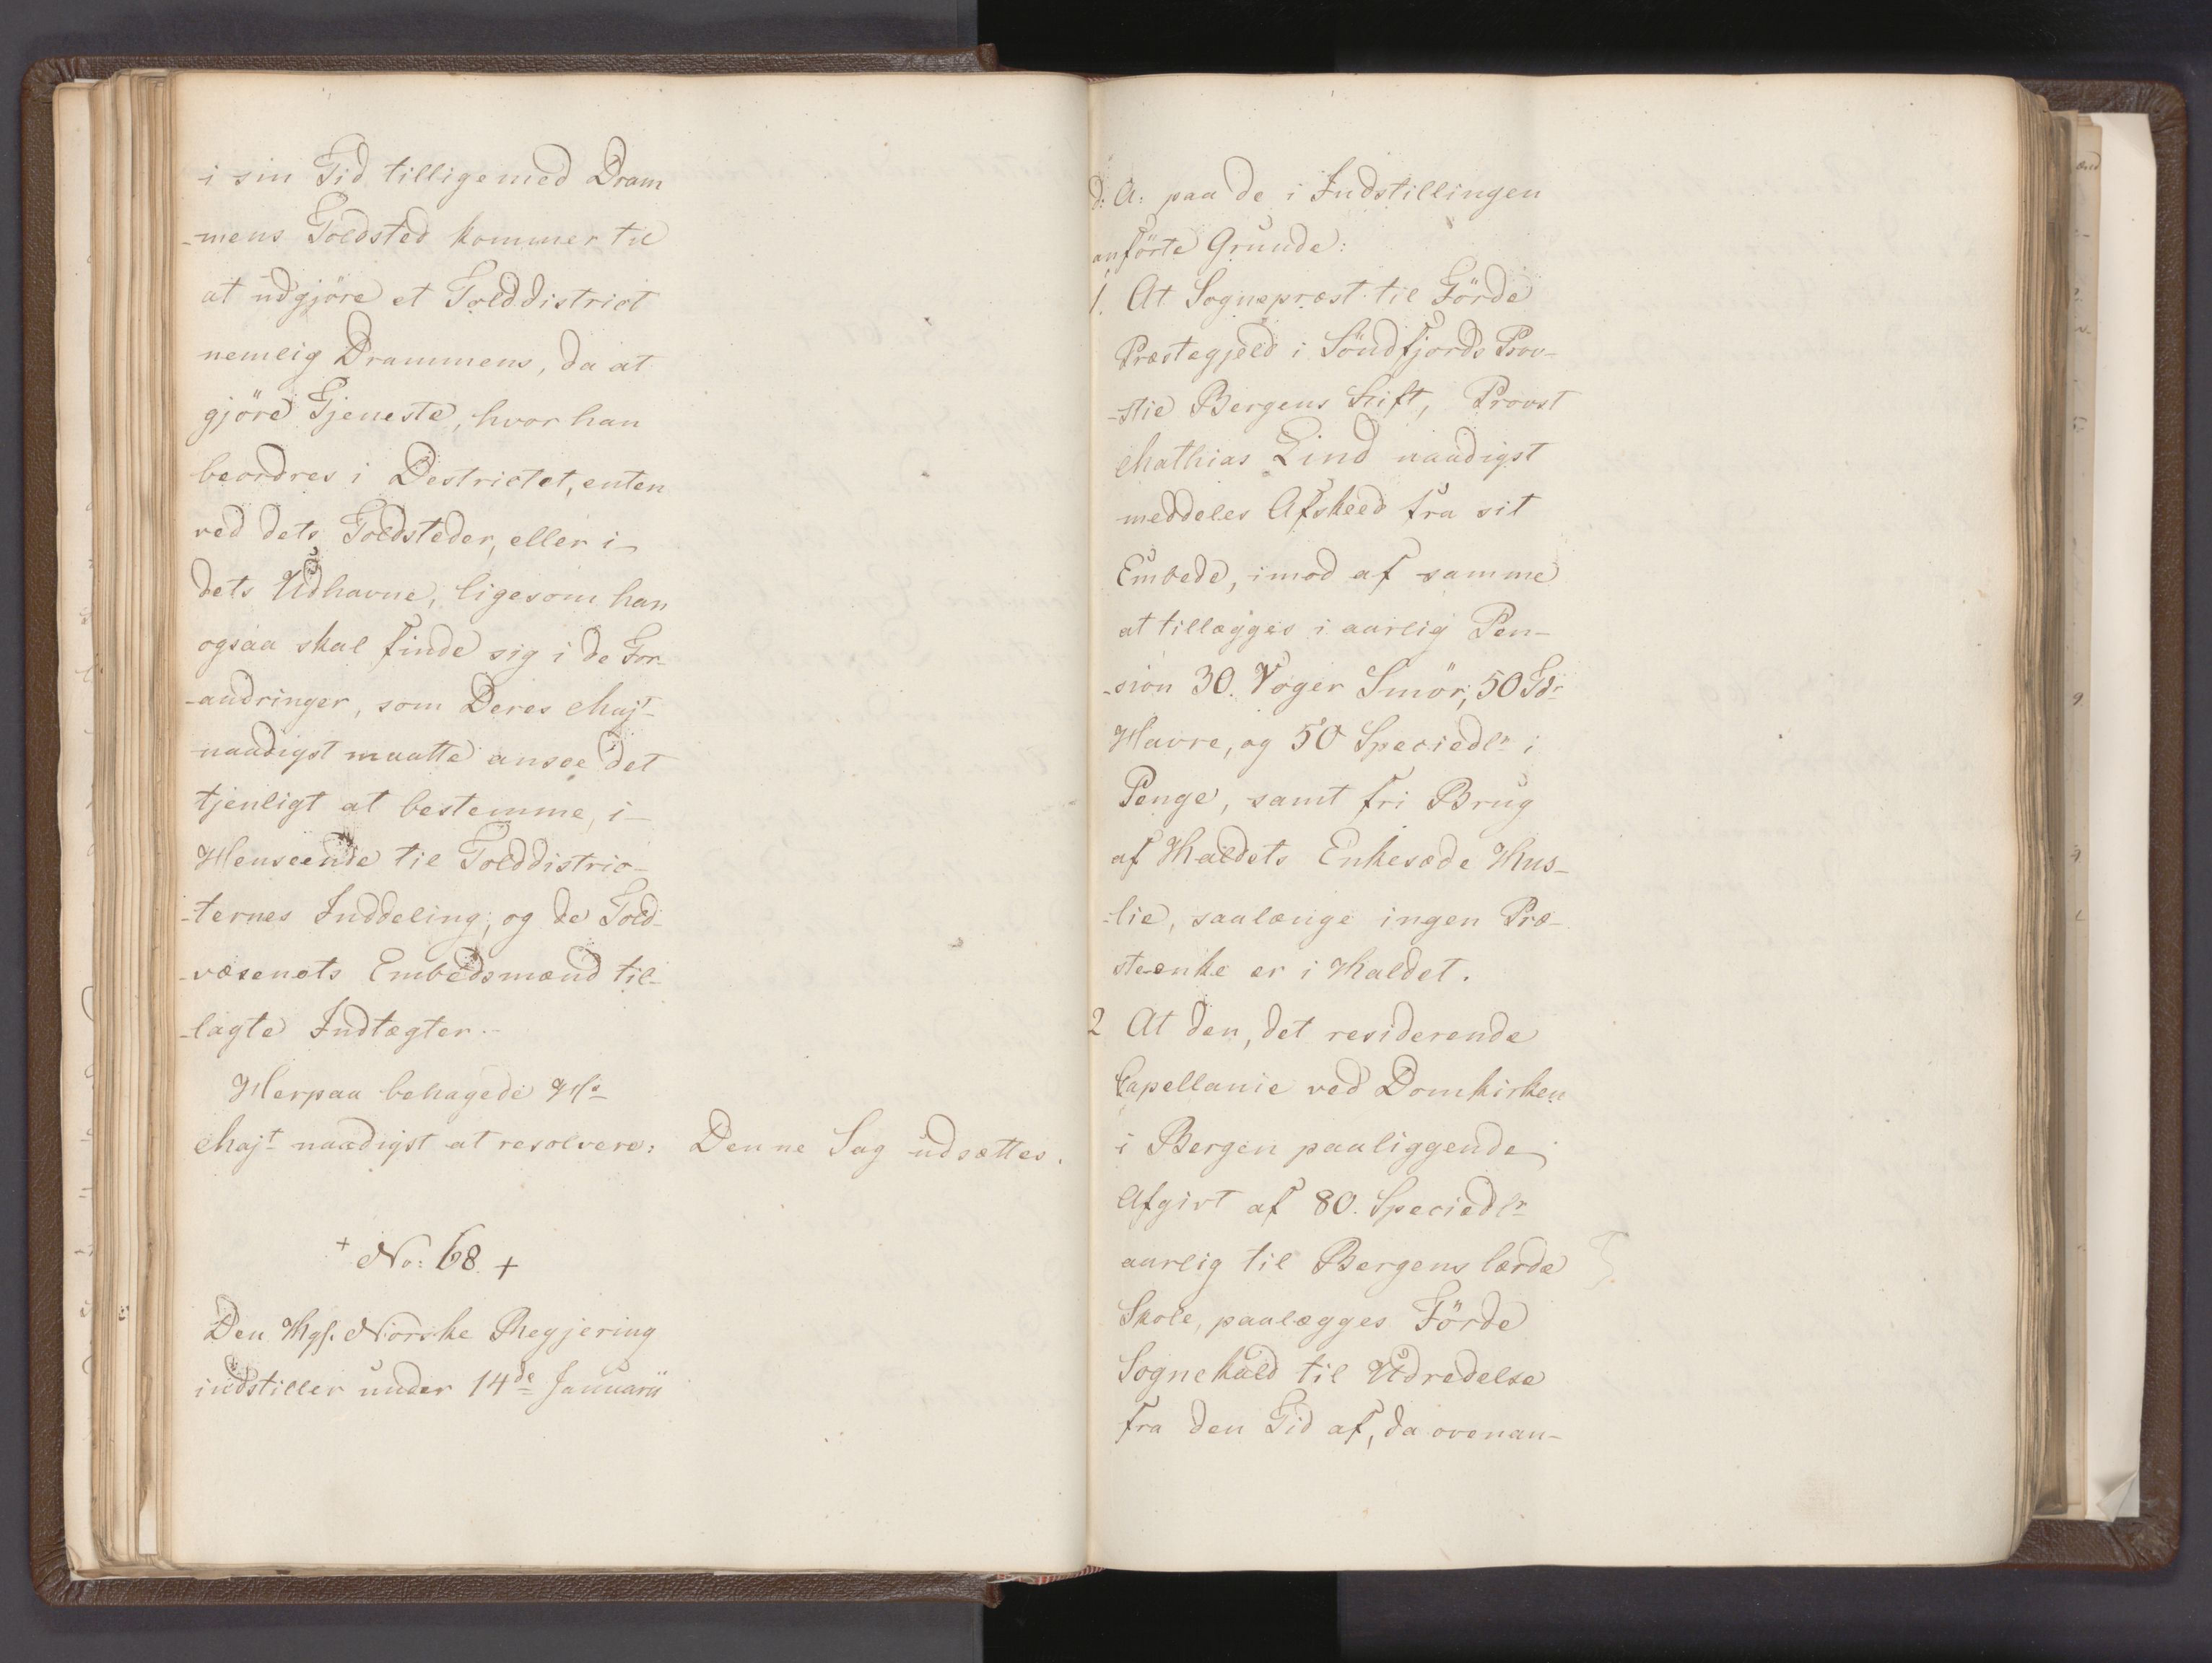 i sin Tid tilligemed Dram
-mens Toldsted kommer til
at udgjöre et Tolddistrict
nemlig Drammens, da at
gjöre Tjeneste, hvor han
beordres i Destrictet, enten
ved dets Toldsteder, eller i
dets Udhavne, ligesom han
ogsaa skal finde sig i de For-
-andringer, som Deres Majt
naadigst maatte ansee det
tjenligt at bestemme, i
Henseende til Tolddistric-
-ternes Inddeling, og de Told-
-væsenets Embedsmænd til-
-lagte Indtægter.-
Herpaa behagede Hs
Majt naadigst at resolvere: Denne Sag udsættes.
+ No: 68. +
Den Kgl. Norske Regjering
indstiller under 14de Januarii
d: A: paa de i Indstillingen
anförte Grunde:
1. At Sognepræst til Förde
Præstegjeld i Söndfjords Prov-
-stie Bergens Stift, Provst
Mathias Lind naadigst
meddeles Afskeed fra sit
Embede, imod af samme
at tillægges i aarlig Pen-
-sion 30. Voger Smör, 50 Tdr
Havre, og 50 Speciedlr i
Penge, samt fri Brug
af Kaldets Enkesæde Hus-
-lie, saalænge ingen Præ-
ste-enke er i Kaldet.
2 At den, det residerende
Capellanie ved Domkirken
i Bergen paaliggende
Afgivt af 80. Speciedlr
aarlig til Bergens lærde
Skole, paalægges Förde
Sognekald til Udredelse
fra den Tid af, da ovenan-